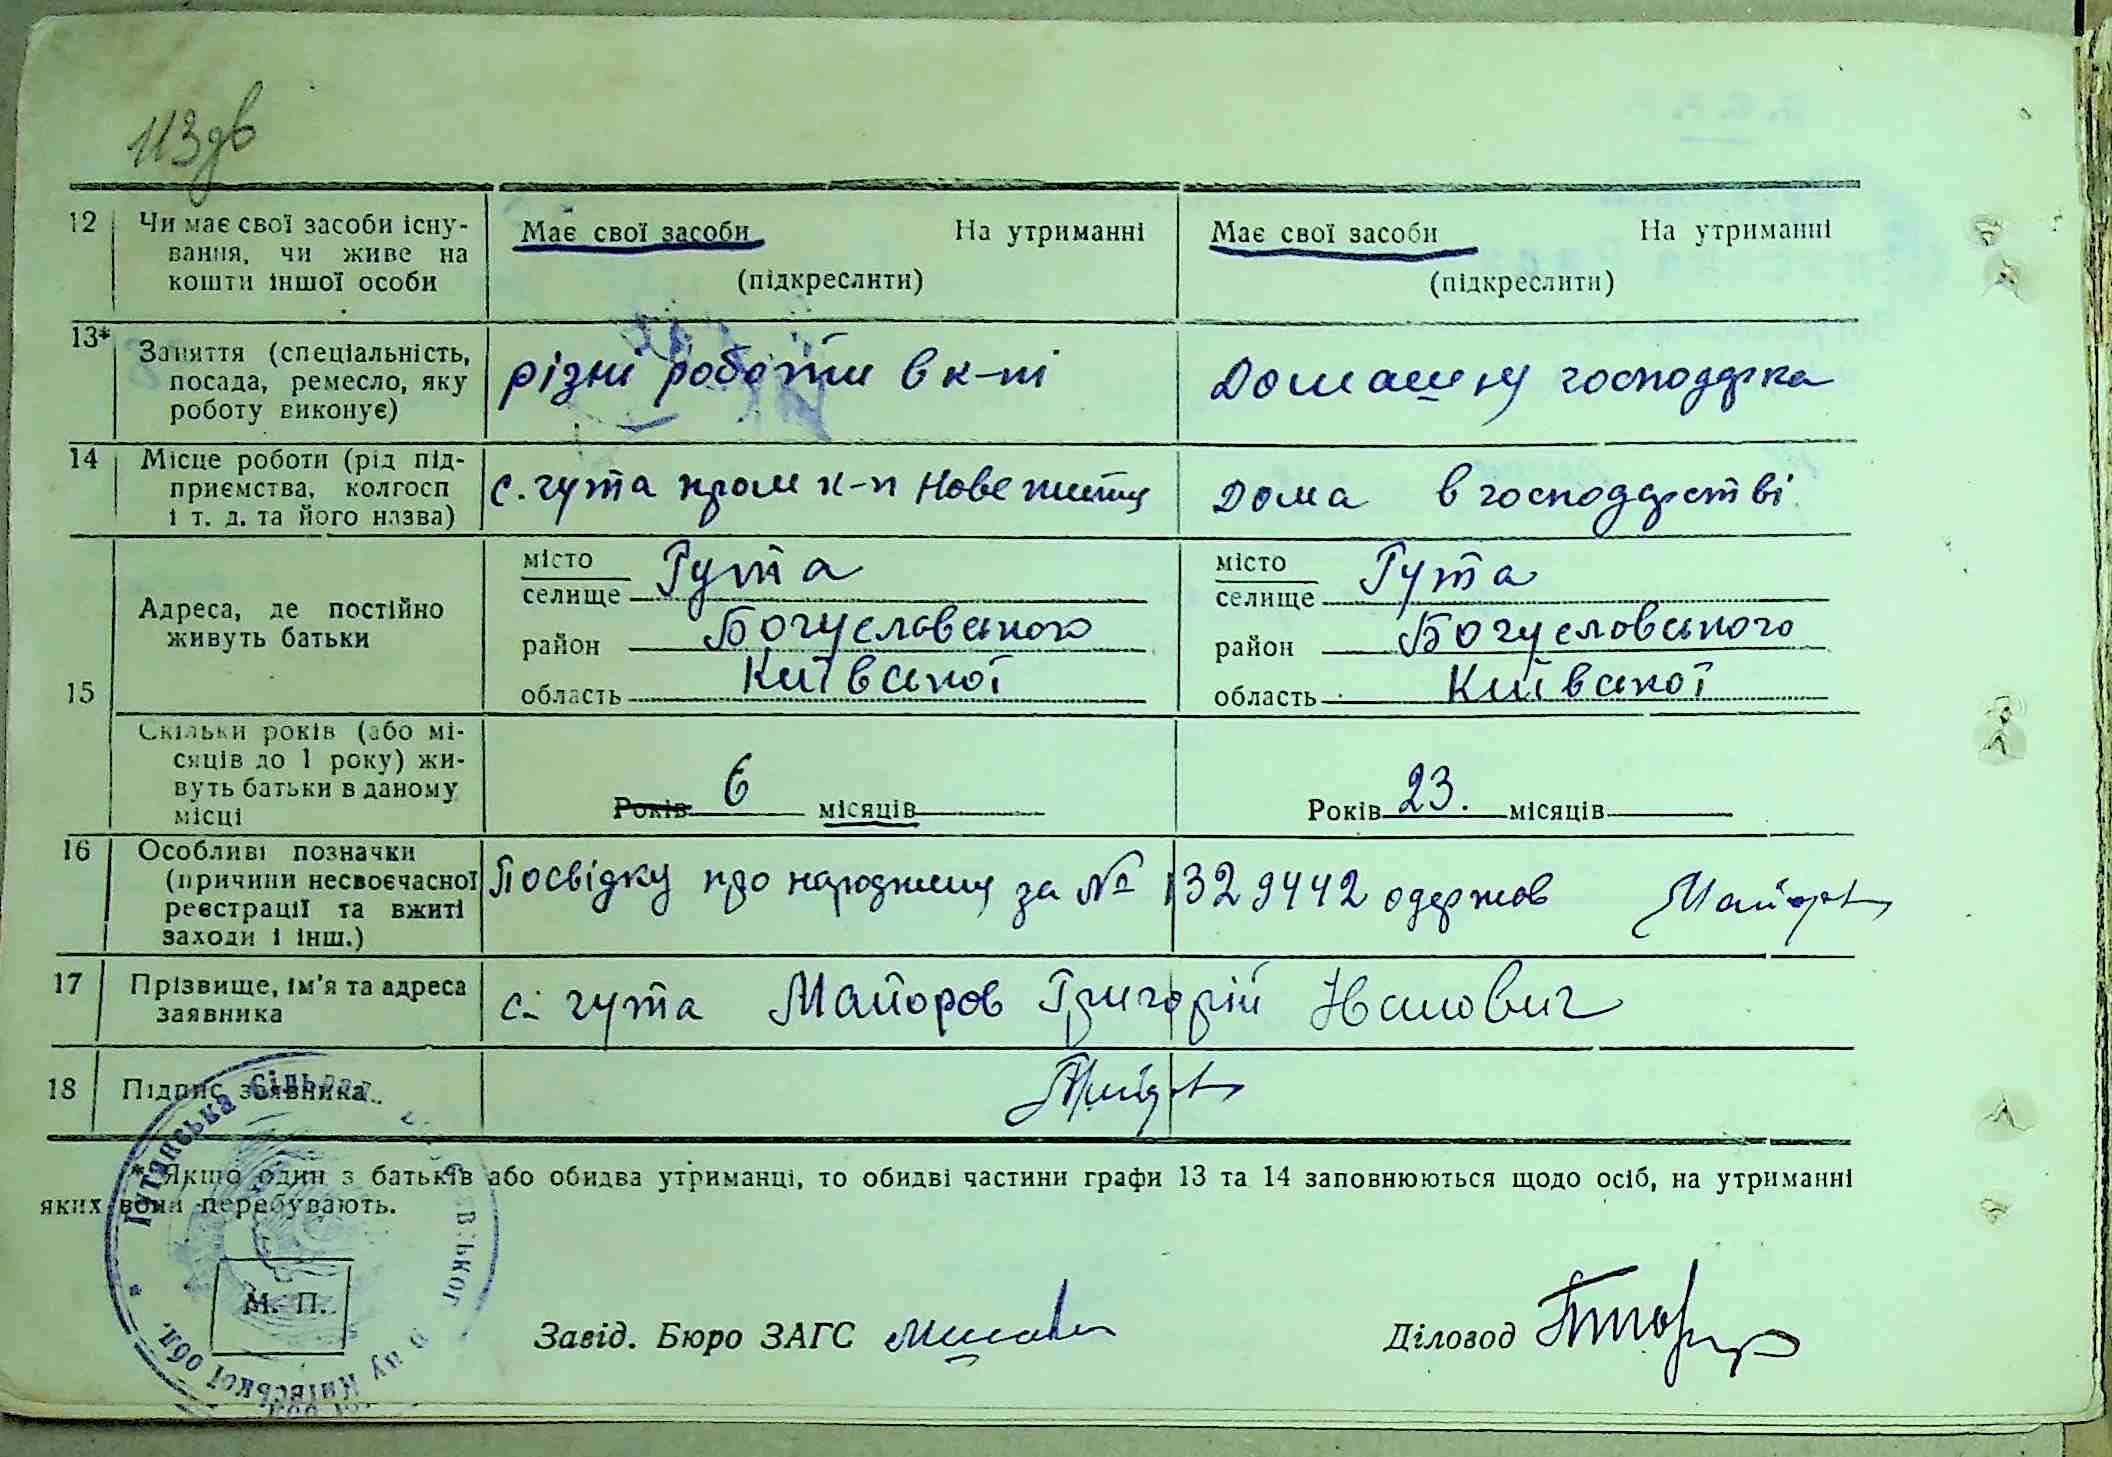 113 дв
12 Чи має свої засоби існу-
вання, чи живе на
кошти іншої особи
Має свої засоби На утриманні
(підкреслити)
Має свої засоби На утриманні
(підкреслити)
13* Заняття (спеціальність,
посада, ремесло, яку
роботу виконує)
різні роботи в к-ті
Домашну господарка
14 Місце роботи (рід під-
приємства, колгосп
і т. д. та його назва)
с. гута пром к-п Нове життя
Дома в господарстві
15 Адреса, де постійно
живуть батьки
місто
селище Гута
район Богуславського
область Київської
місто
селище Гута
район Богуславського
область Київської
Скільки років (або мі-
сяців до 1 року) жи-
вуть батьки в даному
місці
Років 6 місяців
Років 23. місяців
16 Особливі позначки
(причини несвоєчасної
реєстрації та вжиті
заходи і інш.)
Посвідку про народження за № 1329442 одержав Майоров
17 Прізвище, ім'я та адреса
заявника
с. гута Майоров Григорій Іванович
18 Підпис заявника
* Якщо один з батьків або обидва утриманці, то обидві частини графи 13 та 14 заповнюються щодо осіб, на утриманні
яких вони перебувають.
Гутянська сільрада
Київської обл.
М. П.
Завід. Бюро ЗАГС
Діловод